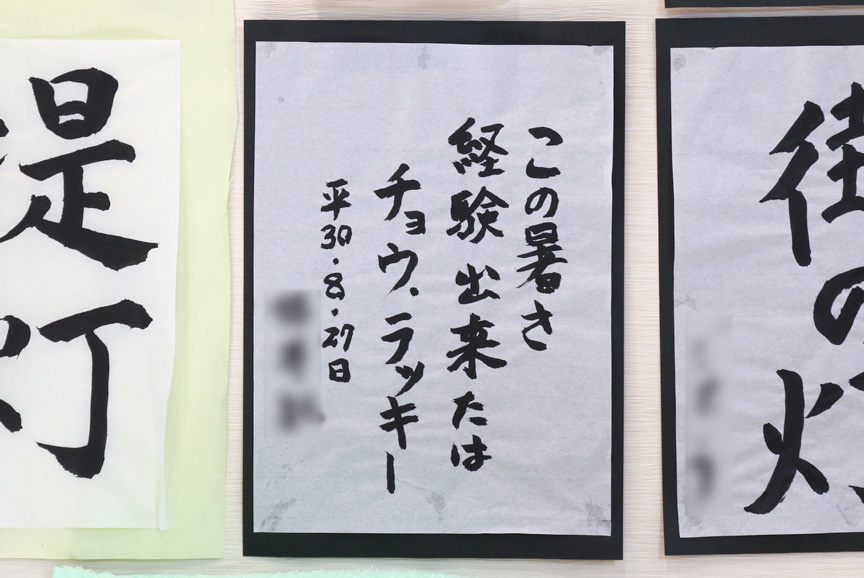 街の灯
この暑さ
経験出来たは
チョウ、ラッキー
平30.8.27日
提灯